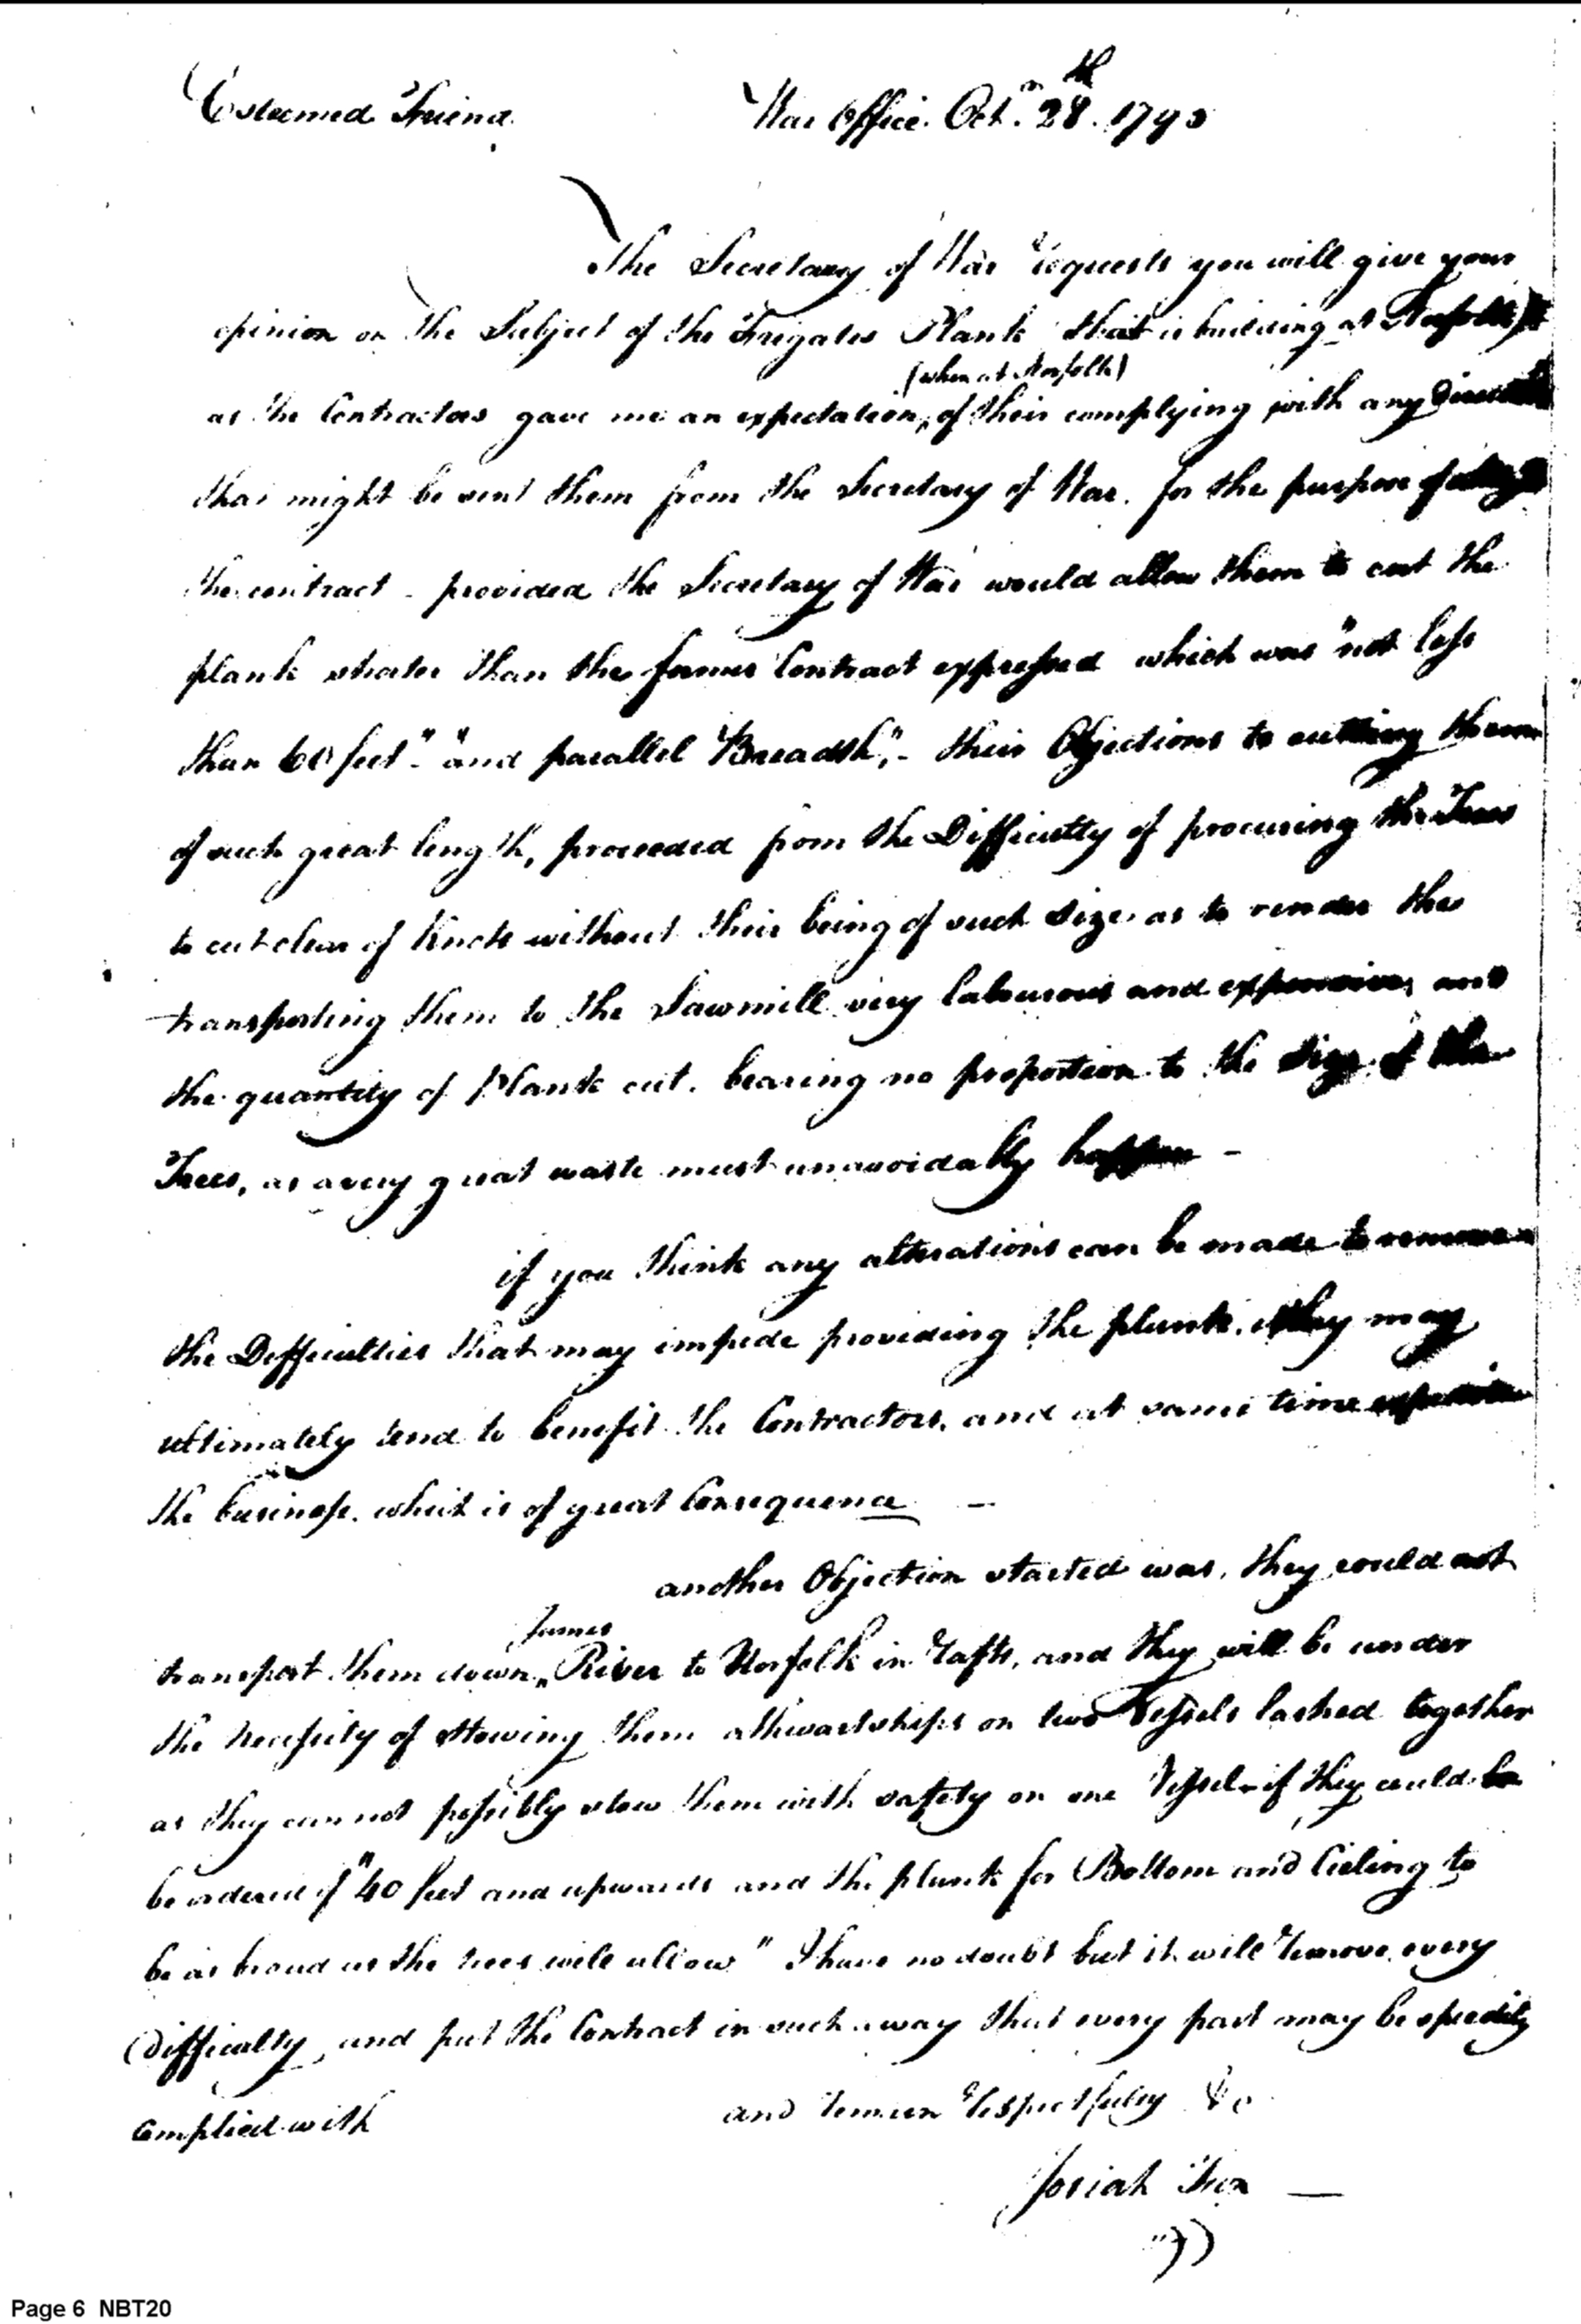 Esteemed Friend War Office Octr. 28th. 1795
The Secretary of War requests you will give your
opinion on the Subject of the Frigates Plank that is building at Norfolk,
(when at Norfolk)
as the Contractors gave me an expectation, of their complying with any
that might be sent them from the Secretary of War. for the purpose of
the contract - provided the Secretary of War would allow them to cut the
plank shorter than the former Contract expressed which was "not less
than 60 feet" - "and parallel Breadth", - their Objections to cutting them
of such great length, proceeded from the Difficulty of procuring the Trees
to cut clear of knots without their being of such size as to render the
transporting them to the Sawmill very labourous and expensive, and
the quantity of Plank cut. bearing no proportion to the size of the
Trees, as a very great waste must unavoidably happen -
if you think any alterations can be made to remove
the Difficulties that may impede providing the plank. they may
ultimately tend to benefit the Contractors, and at same time
the business. which is of great Consequence -
another Objection started was, they could not
James
transport them down River to Norfolk in rafts, and they will be under
the necessity of stowing them athwartships on two Vessels lashed together
as they can not possibly stow them with safety on one Vessel - if they could be
be ordered of "40 feet and upwards and the plank for Bottom and Cieling to
be as broad as the trees will allow" I have no doubt but it will remove every
Difficulty, and put the Contract in such a way that every part may be speedily
Complied with and remain respectfully &c
Josiah Fox —
Page 6 NBT20